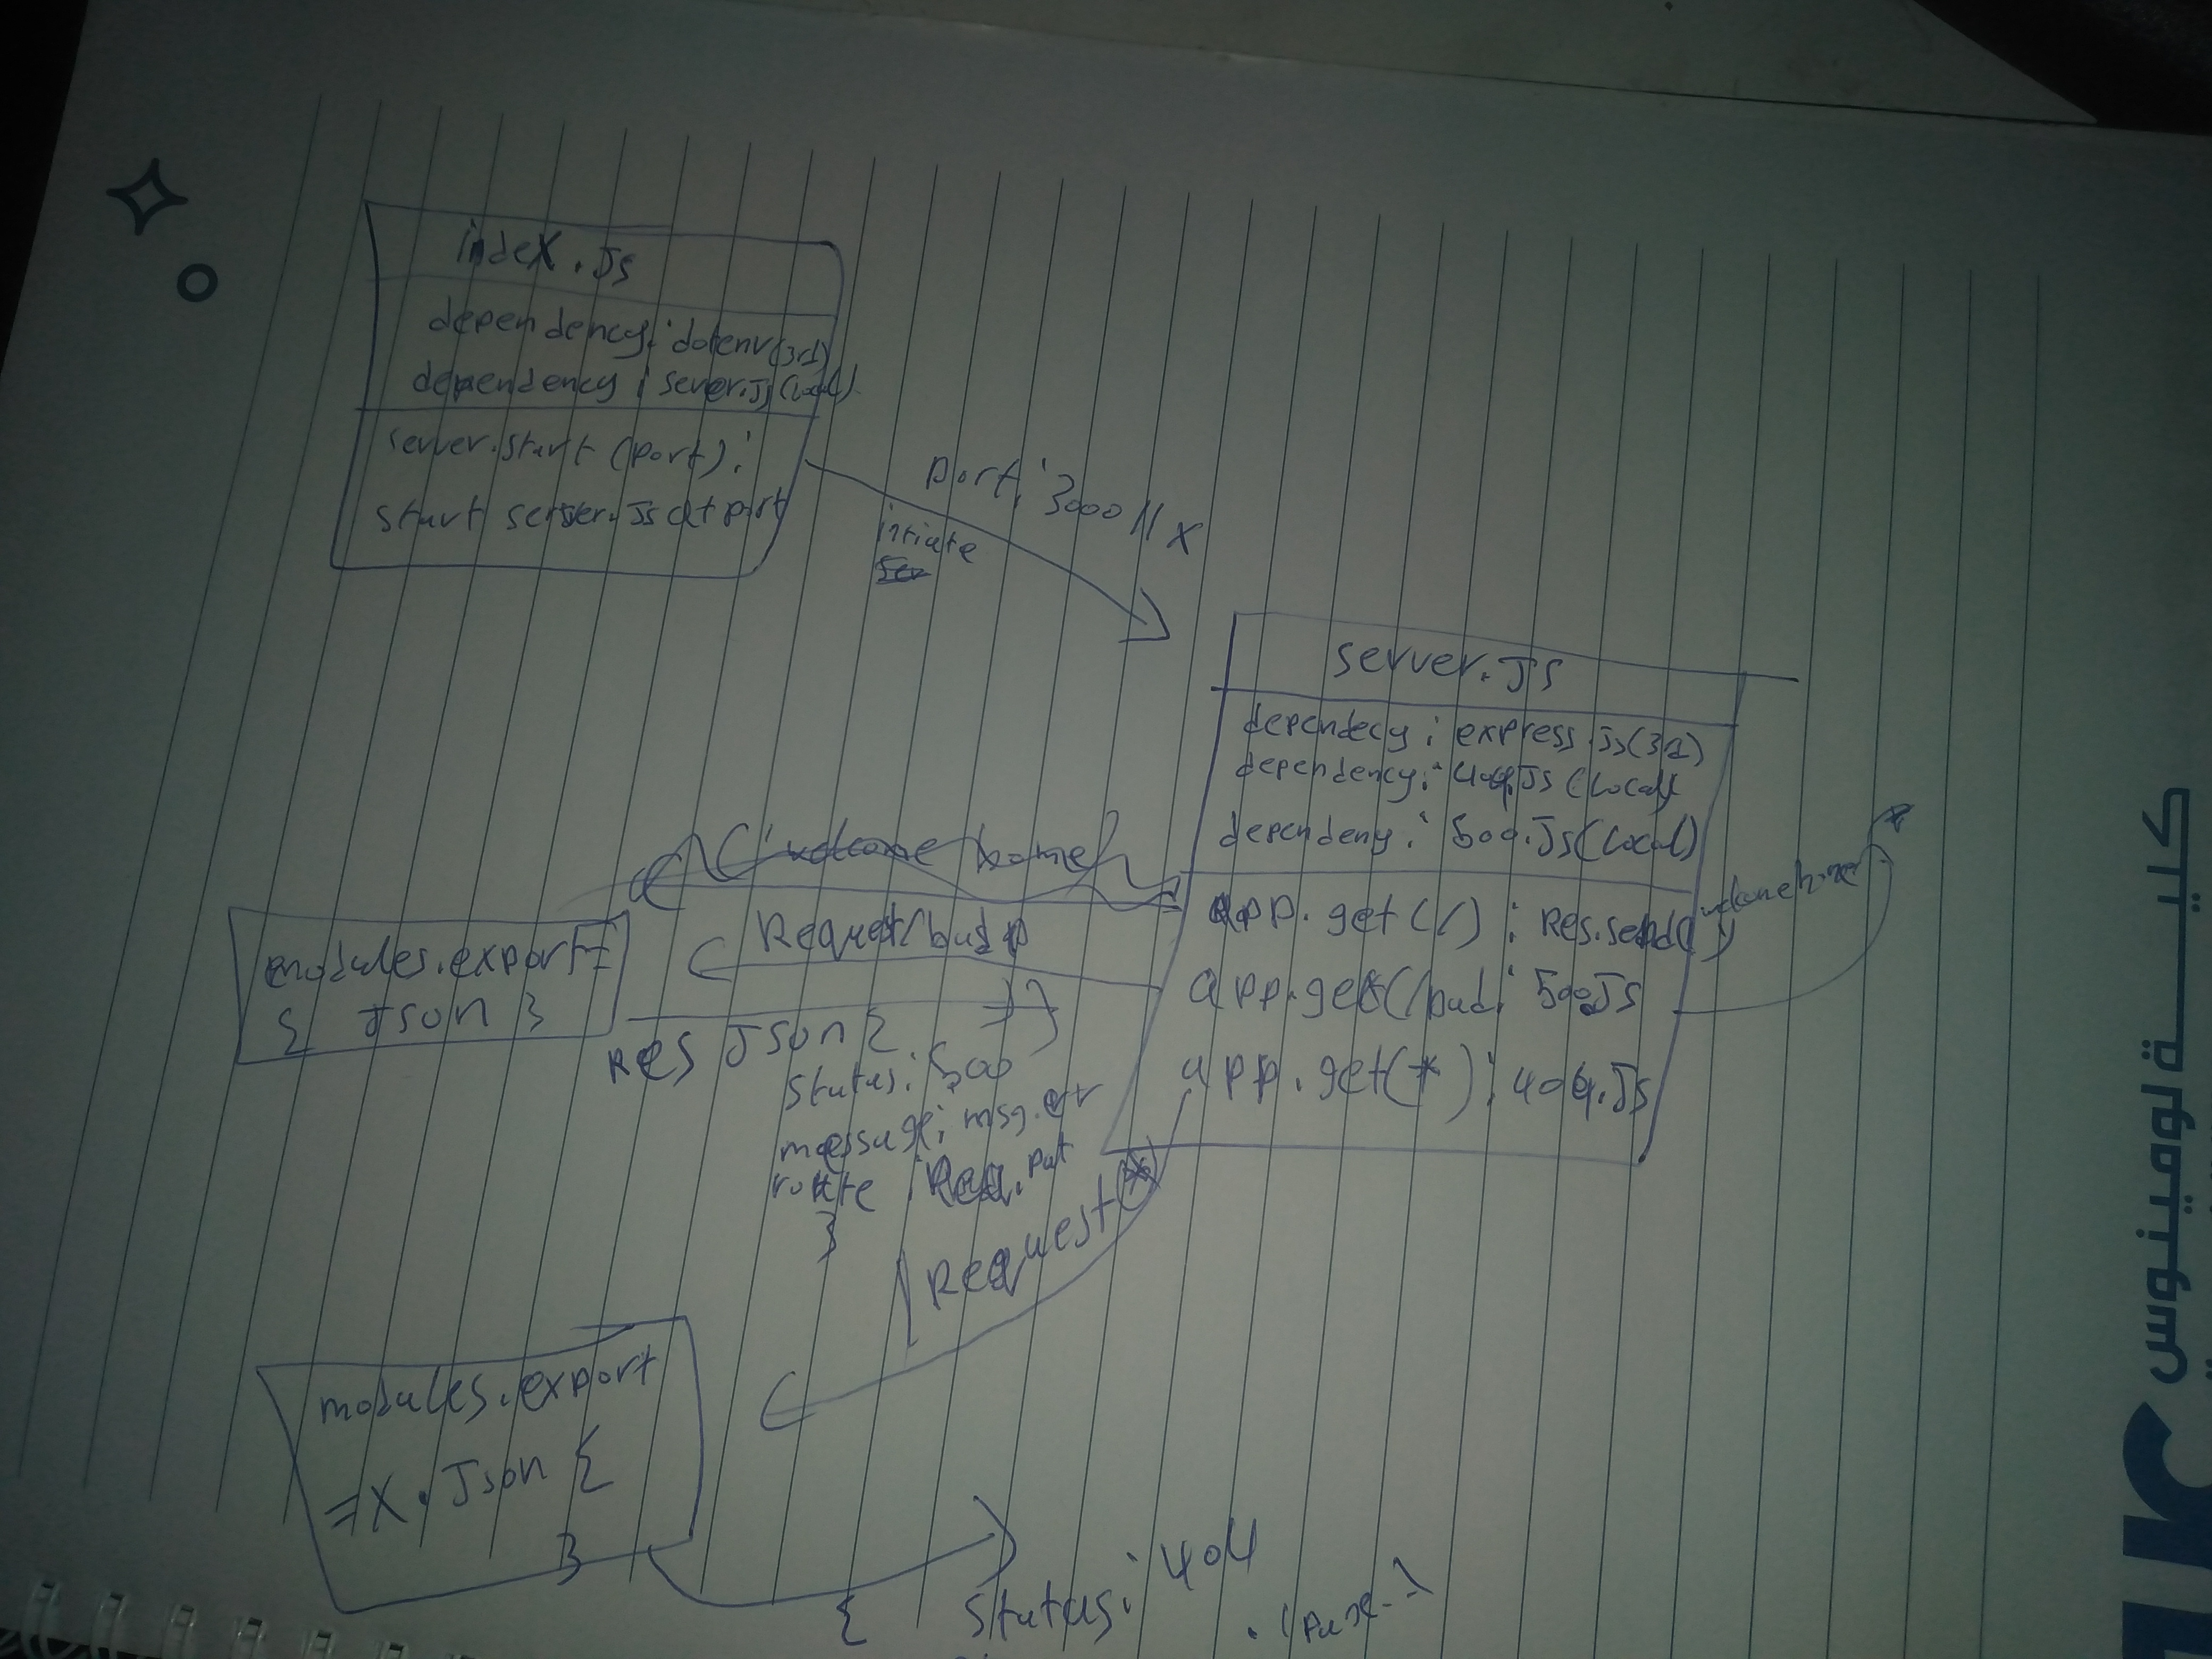 index.Js
dependency: dotenv(3rd)
dependency: server.Js(local)
server.start (port):
start server.Js at port
port: 3000 || X
intiate
server.JS
dependecy: express.Js(3d)
dependency: 404.Js (Local)
dependeny: 500.Js(Local)
app.get(/) : Res.send( )
welcome home
app.get(/bad: 500Js
app.get(*): 404.Js
welcome home
Request/bad
modules.export=
{ Json }
Res Json {
status: 500
message: msg.err
route : Req.pat
}
Request(*)
modules.export
=X.Json {
}
{ status: 404
كليـــــة لومينوس